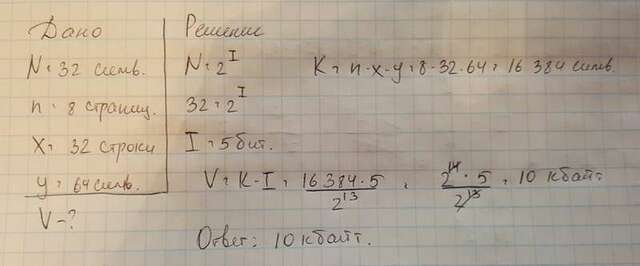 Дано
N = 32 симв.
n = 8 страниц.
x = 32 строки
y = 64 симв.
V - ?
Решение
N = 2^I K = n · x · y = 8 · 32 · 64 = 16 384 симв.
32 = 2^I
I = 5 бит.
V = K · I = 16 384 · 5 / 2^13 = 2^14 · 5 / 2^13 = 10 кбайт
Ответ: 10 кбайт.